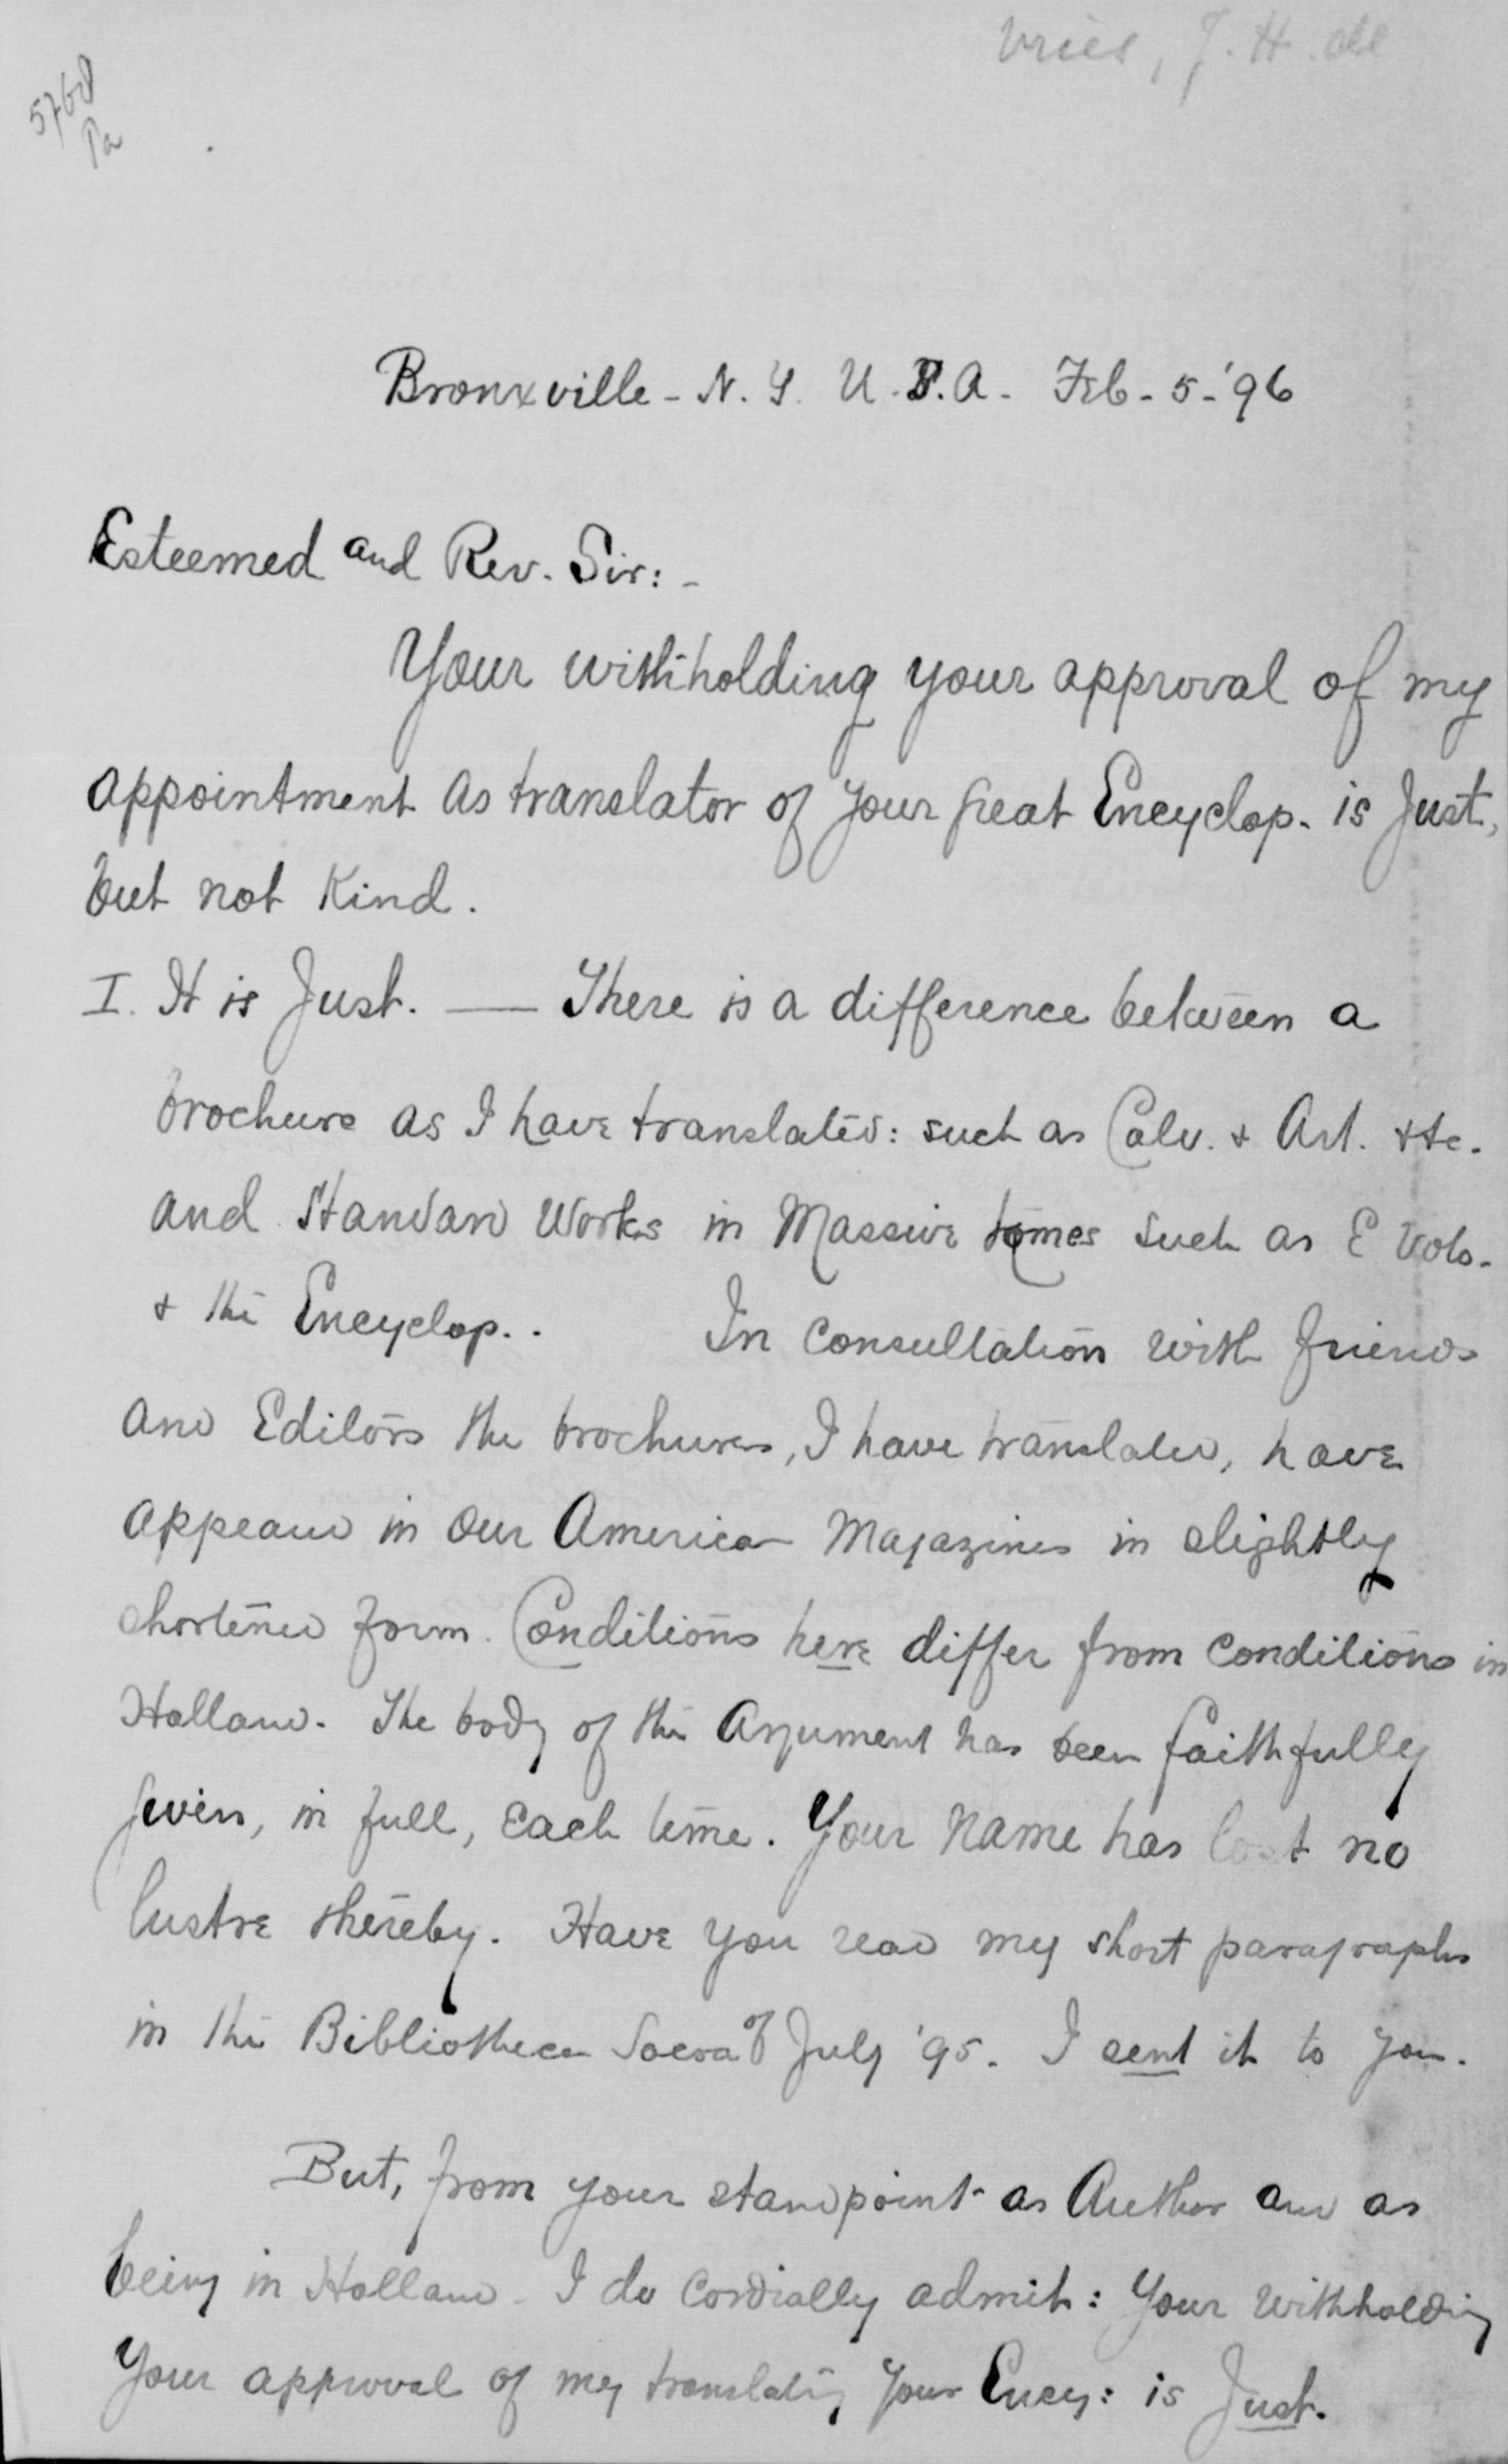 Vries, J. H. de
5768
Pa
Bronxville - N. Y. U. S. A - Feb - 5 - '96
Esteemed and Rev. Sir: -
Your withholding your approval of my
appointment as translator of your great Encyclop. is Just,
but not Kind.
I. It is Just. — There is a difference between a
brochure as I have translated: such as Calv. & Art. &tc.
and Standard Works in Massive tomes such as E Vols.
& the Encyclop. . In Consultation with friends
and Editors the brochures, I have translated, have
appeared in our American Magazines in slightly
shortened form. Conditions here differ from Conditions in
Holland. The body of the Argument has been faithfully
given, in full, each time. Your name has lost no
lustre thereby. Have you read my short paragraphs
in the Bibliotheca Sacra of July '95. I sent it to you.
But, from your standpoint as Author and as
being in Holland - I do Cordially admit: Your Withholding
Your approval of my translating Your Ency: is Just.